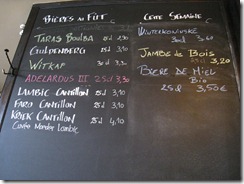 BIÈRES AU FÛT
TARAS BOULBA 25cl 3,10
GULDENBERG 25cl 3,10
WITKAP 25cl 3,10
ADELARDUS III 25cl 3,30
LAMBIC CANTILLON 25cl 3,10
FARO CANTILLON 25cl 3,10
KRIEK CANTILLON 25cl 4,10
Cuvée Mander Lambic
CETTE SEMAINE
3,20
JAMBE de BOIS
25cl 3,20
BIERE DE MIEL
25cl 3,50€